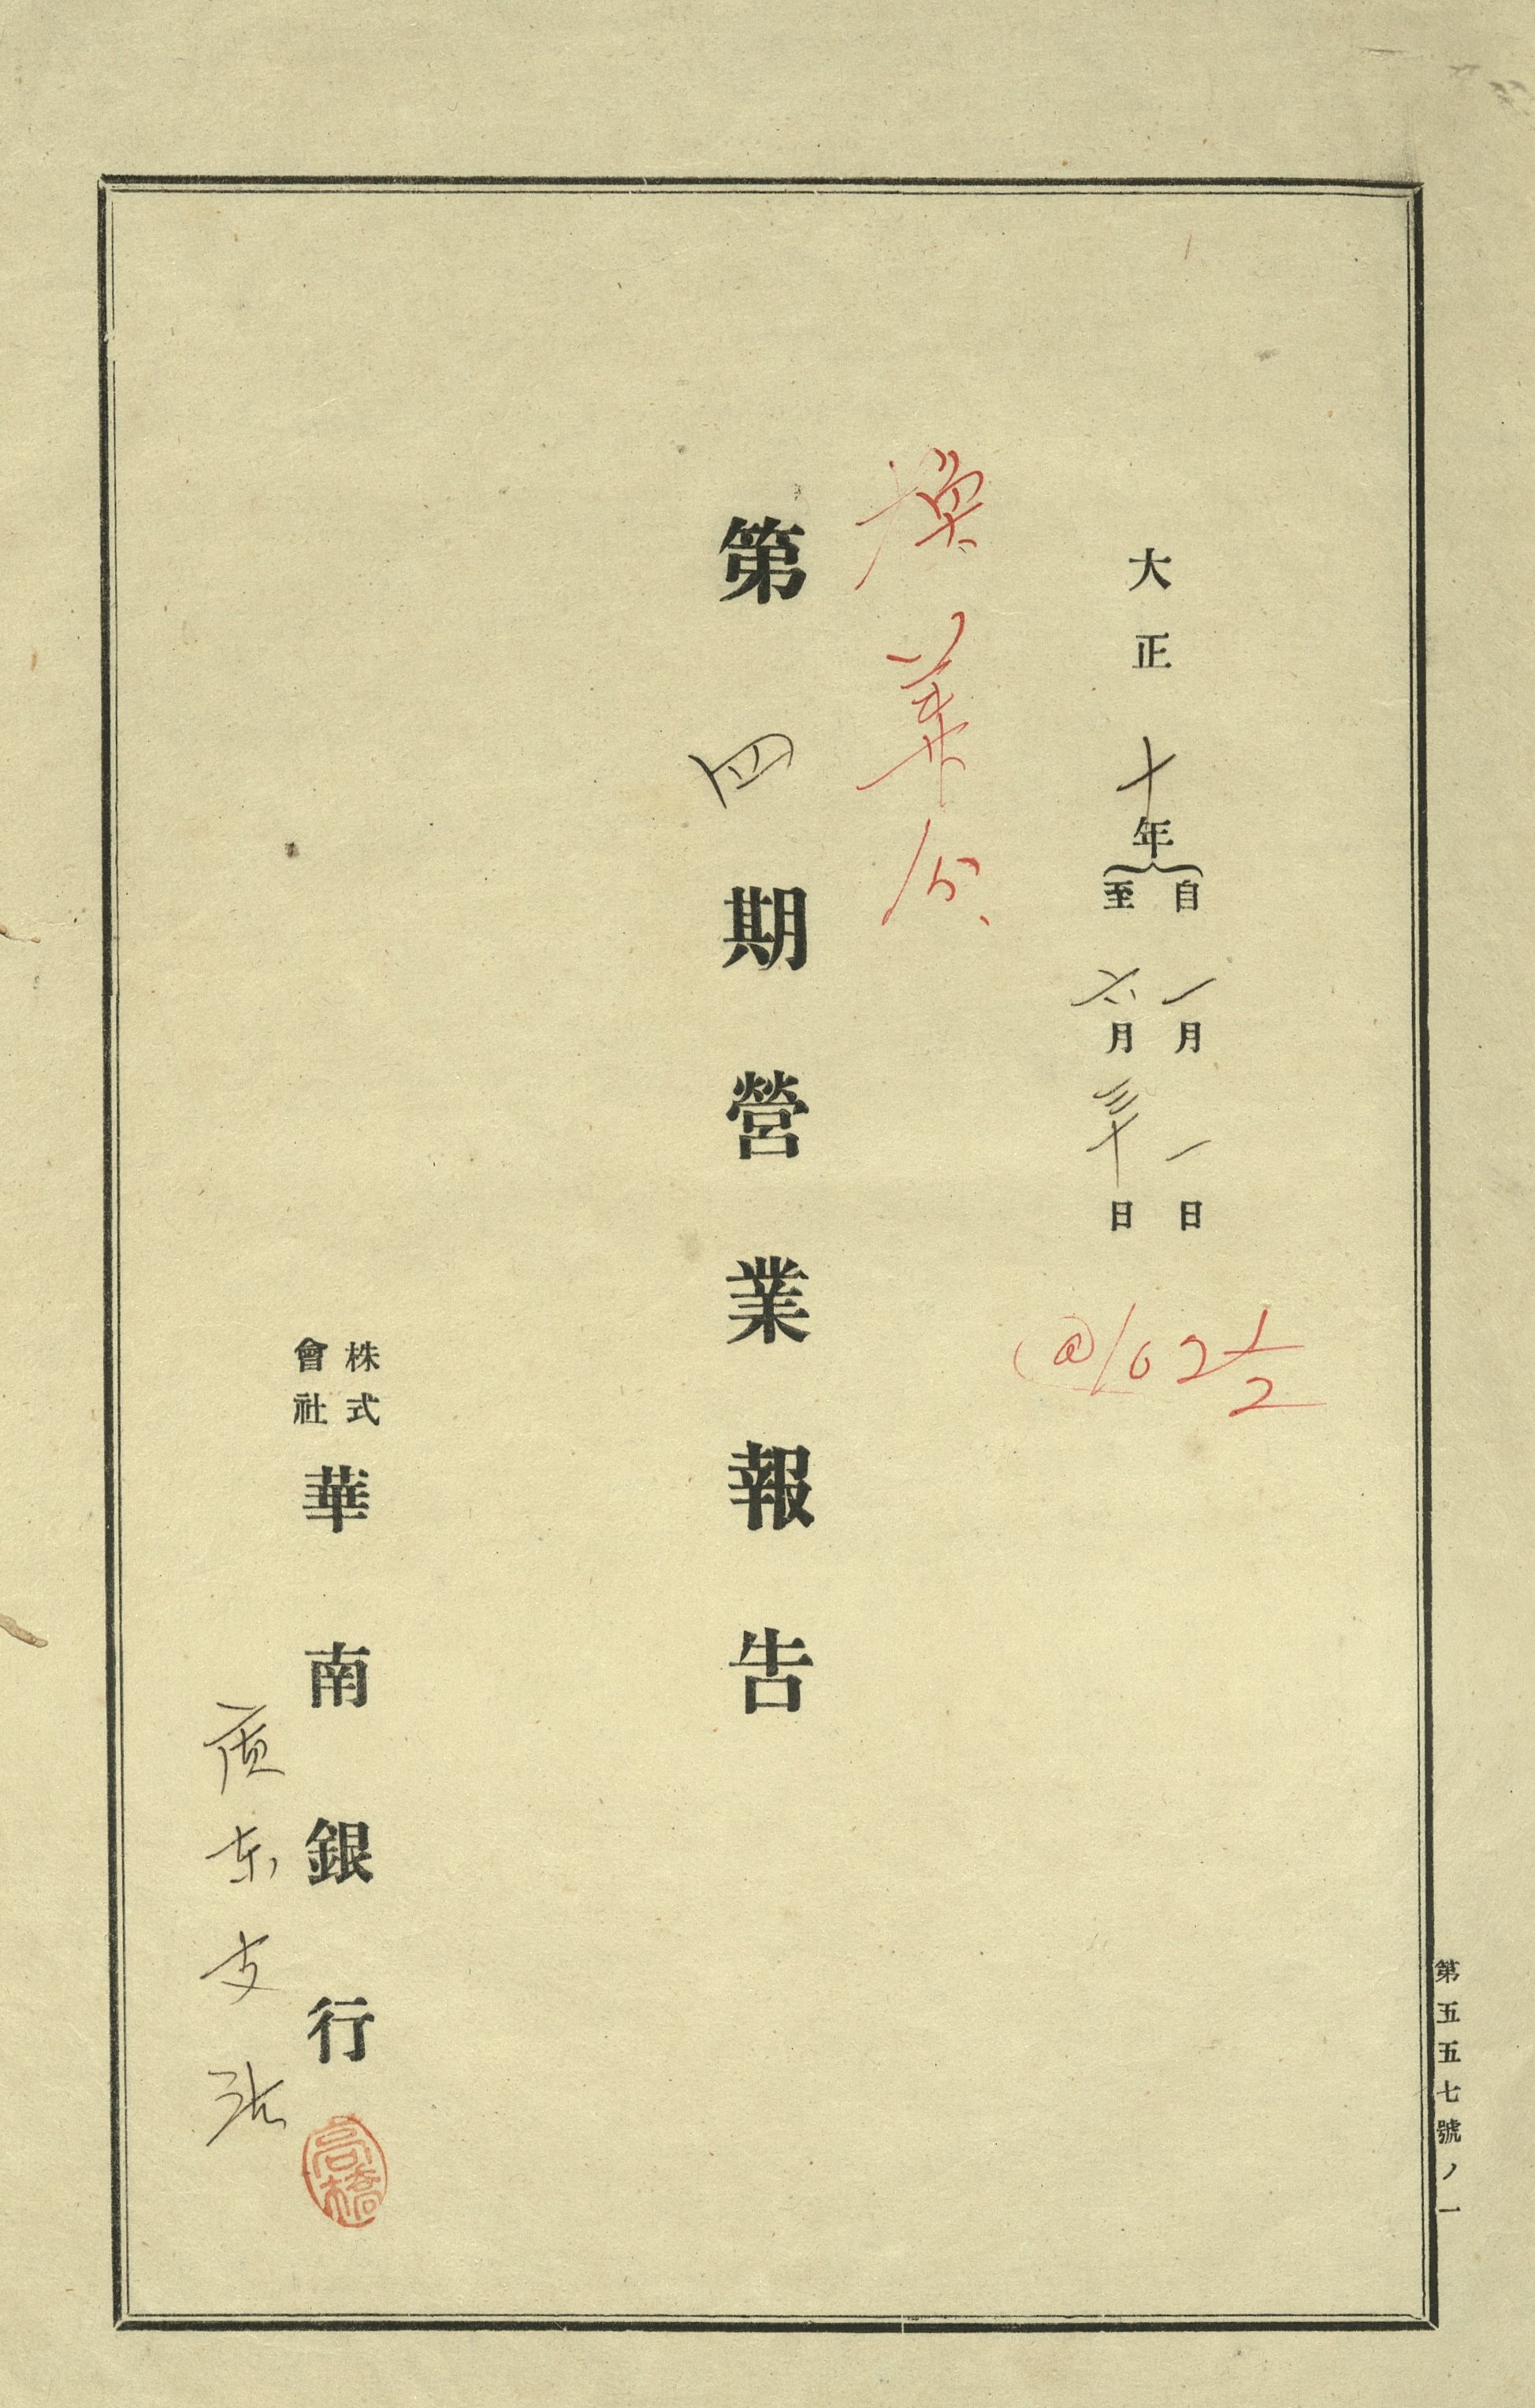 大正十年
自一月一日
至六月三十日
@102 1/2
換算分
第四期營業報告
株式會社華南銀行
廣东支店
高橋
第五五七號ノ一